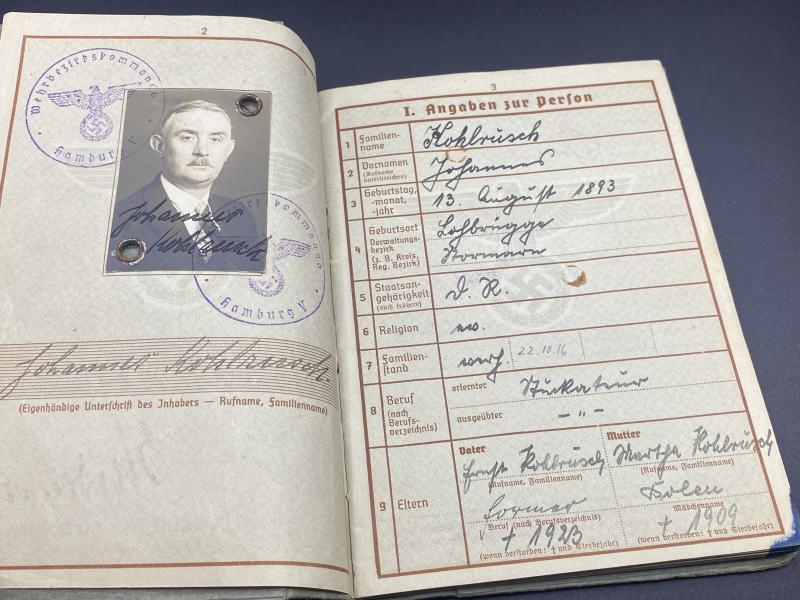 2
Wehrbezirkskommando
Hamburg V
Johannes
Kohlrusch
Hamburg V
Johannes Kohlrusch.
(Eigenhändige Unterschrift des Inhabers — Rufname, Familienname)
3
I. Angaben zur Person
1 Familien-
name
Kohlrusch
2 Vornamen
(Rufname
unterstreichen)
Johannes
3 Geburtstag,
-monat,
-jahr
13. August 1893
4 Geburtsort
Verwaltungs-
bezirk
(z. B. Kreis,
Reg. Bezirk)
Lohbrügge
Stormarn
5 Staatsan-
gehörigkeit
(auch frühere)
D. R.
6 Religion
ev.
7 Familien-
stand
verh. 22.10.16
8 Beruf
(nach
Berufs-
verzeichnis)
erlernter Stuckateur
ausgeübter — " —
9 Eltern
Vater
Ernst Kohlrusch
(Rufname, Familienname)
Former
Beruf (nach Berufsverzeichnis)
† 1923
(wenn verstorben: † und Sterbejahr)
Mutter
Martha Kohlrusch
(Rufname, Familienname)
Mädchenname
† 1909
(wenn verstorben: † und Sterbejahr)